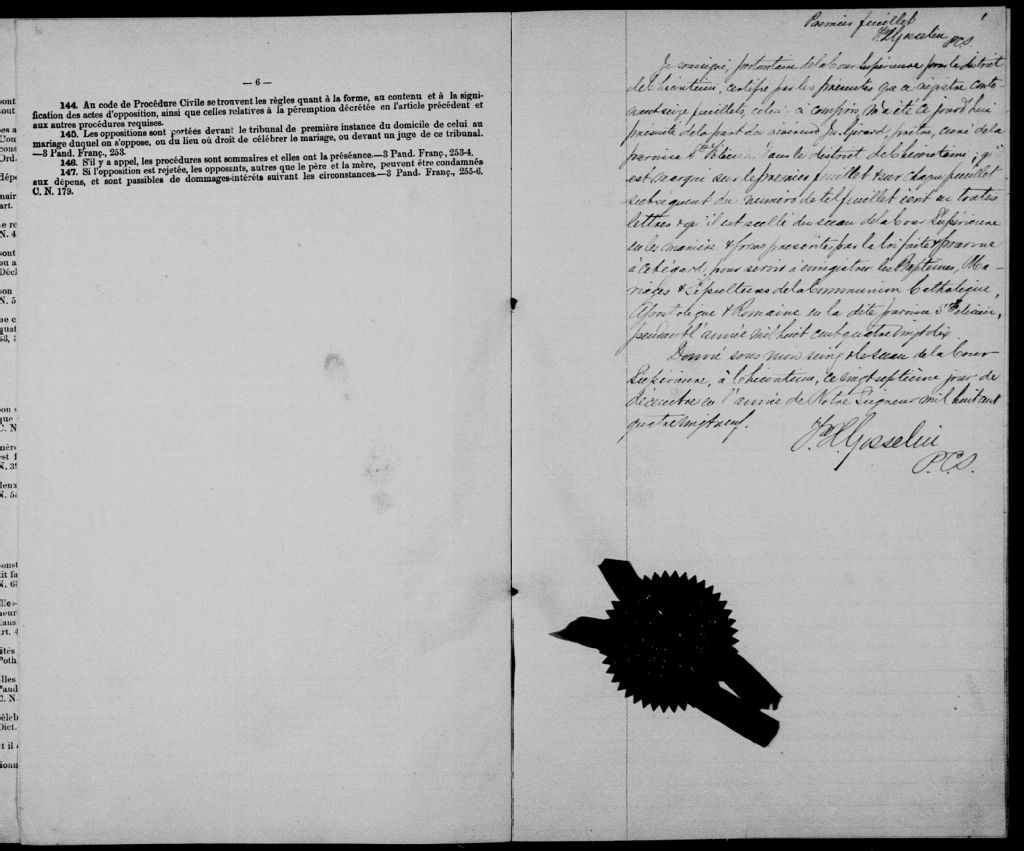 — 6 —
144. Au code de Procédure Civile se trouvent les règles quant à la forme, au contenu et à la signi-
fication des actes d'opposition, ainsi que celles relatives à la péremption décrétée en l'article précédent et
aux autres procédures requises.
145. Les oppositions sont portées devant le tribunal de première instance du domicile de celui au
mariage duquel on s'oppose, ou du lieu où droit de célébrer le mariage, ou devant un juge de ce tribunal.
—3 Pand. Franç., 253.
146. S'il y a appel, les procédures sont sommaires et elles ont la préséance.—3 Pand. Franç., 253-4.
147. Si l'opposition est rejetée, les opposants, autres que le père et la mère, peuvent être condamnés
aux dépens, et sont passibles de dommages-intérêts suivant les circonstances.—3 Pand. Franç., 255-6.
C. N. 179.
Premier feuillet 1
Gosselin PCS
Je soussigné, protonotaire de la Cour Supérieure pour le district
de Chicoutimi, certifie par les présentes que ce registre conte
nant seize feuillets, celui-ci compris, m'a été ce jourd'hui
présenté de la part du révérend J. Girard, prêtre, curé de la
paroisse St Félicien, dans le district de Chicoutimi; qu'il
est marqué sur le premier feuillet & sur chaque feuillet
subséquent du numéro de tel feuillet écrit en toutes
lettres & qu'il est scellé du sceau de la Cour Supérieure
en la manière & forme prescrites par la loi faite & pourvue
à cet égard, pour servir à enregistrer les Baptêmes, Ma-
riages & Sépultures de la Communion Catholique,
Apostolique & Romaine en la dite paroisse St Félicien,
pendant l'année mil huit cent quatre vingt dix.
Donné sous mon seing & le sceau de la Cour
Supérieure, à Chicoutimi, ce vingt septième jour de
décembre en l'année de Notre Seigneur mil huit cent
quatre vingt neuf.
Gosselin
P.C.S.